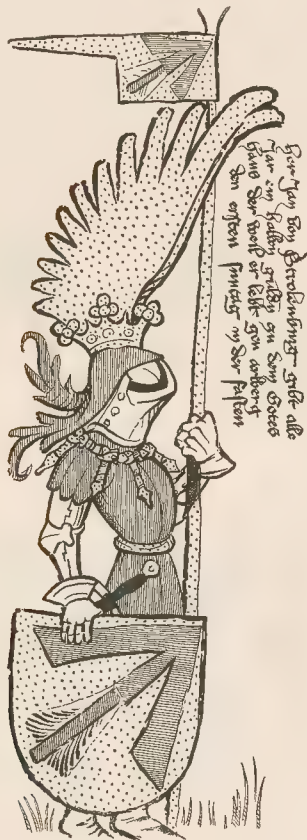 her Jan von Strolenburg gibt alle
Jar ein halben gulden zu dem Gotes
haus der weil er lebt gen arlberg
den ersten suntag in der fasten